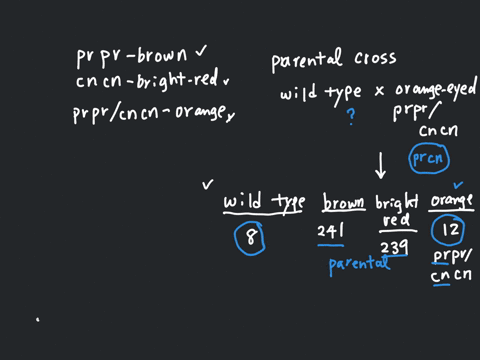 prpr-brown ✓
cncn-bright-red ✓
prpr/cncn-orange ✓
parental cross
wild type x orange-eyed
? prpr/
cncn
prcn
✓ wild type brown bright red orange ✓
8 241 239 12
parental prpr/
cncn